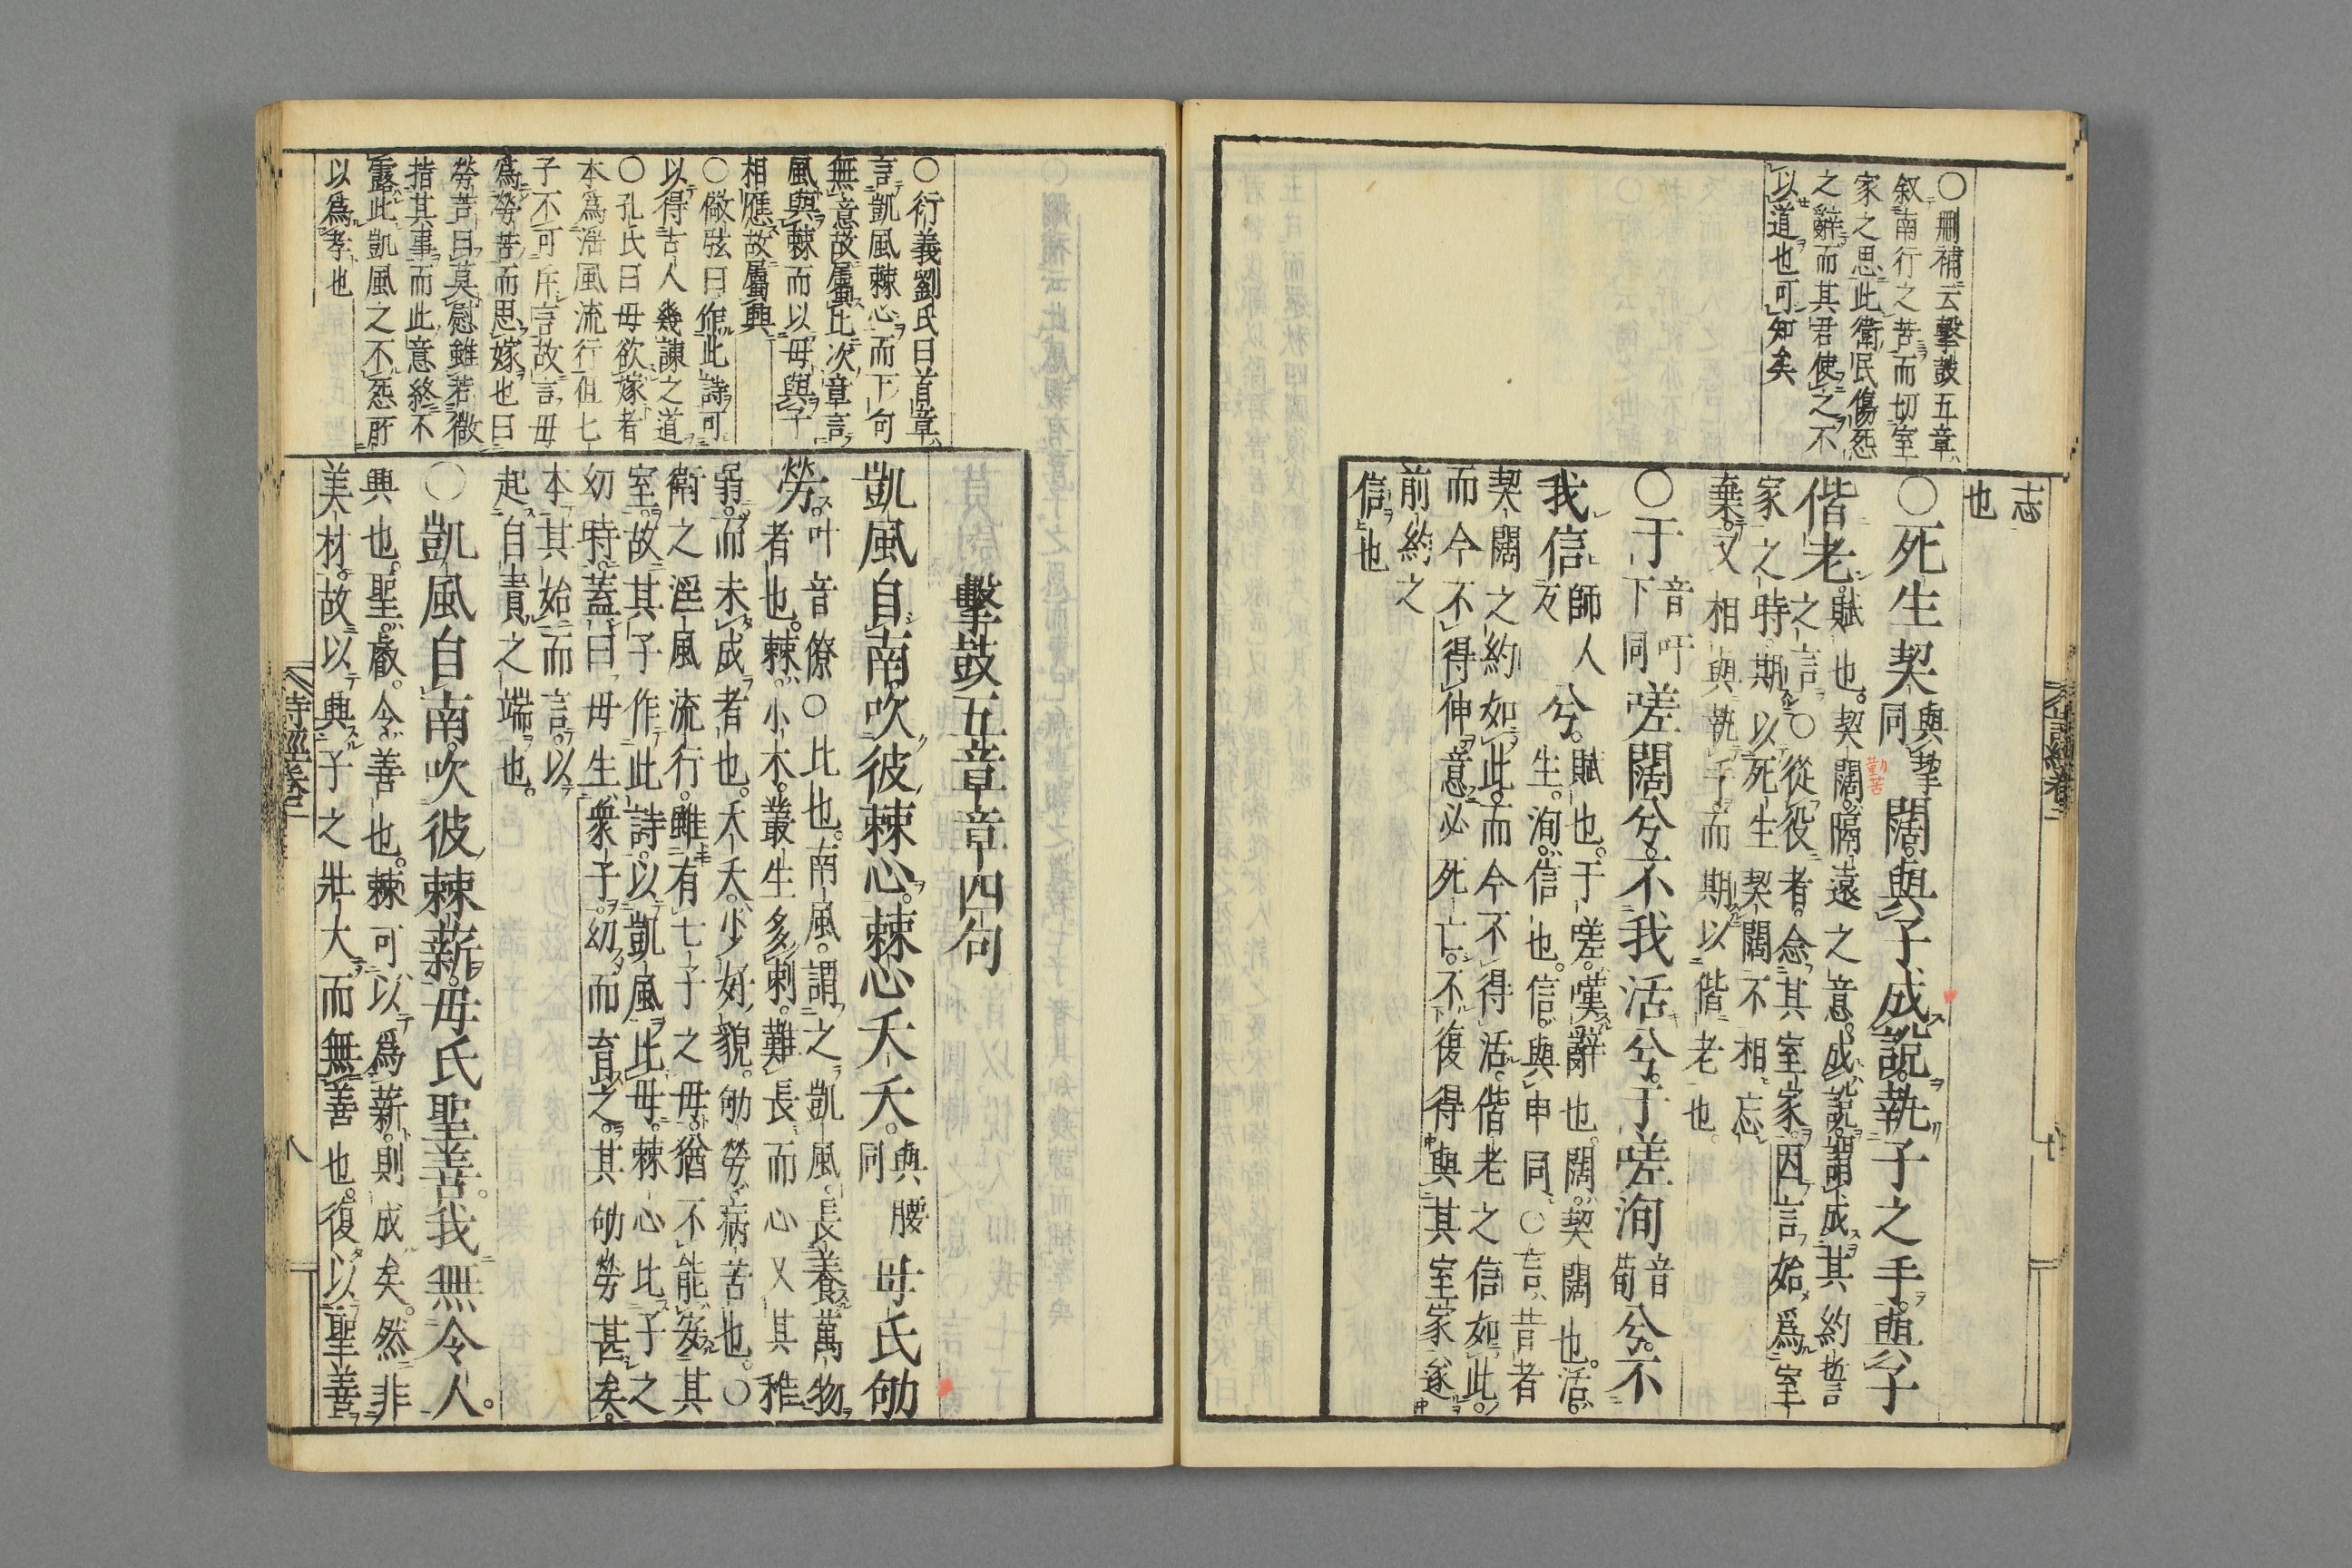 ○刪補云擊鼓五章
叙南行之苦而切室
家之思此衛民傷怨
之辭而其君使之不
以道也可知矣
志
也
○死生契與挈同闊與子成說執子之手與子
偕老賦也契闊隔遠之意成說謂成其約誓
之言○從役者念其室家因言始爲室
家之時期以死生契闊不相忘
棄又相與執手而期以偕老也
勤苦
○于音吁下同嗟闊兮不我活兮于嗟洵音荀兮不
我信師人友兮賦也于嗟嘆辭也闊契闊也活
生洵信也信與申同○言昔者
契闊之約如此而今不得活偕老之信如此
而今不得伸意必死亡不復得與其室家遂
前約之
信也
擊鼓五章章四句
○衍義劉氏曰首章
言凱風棘心而下句
無意故屬比次章言
風與棘而以母與子
相應故屬興
○儆弦曰作此詩可
以得古人幾諫之道
○孔氏曰母欲嫁者
本爲淫風流行但七
子不可斥言故言母
爲勞苦而思嫁也曰
勞苦曰莫慰雖若微
指其事而此意終不
露此凱風之不怨所
以爲孝也
凱風自南吹彼棘心棘心夭夭與腰同母氏劬
勞叶音僚○比也南風謂之凱風長養萬物
者也棘小木叢生多刺難長而心又其稚
弱而未成者也夭夭少好貌劬勞病苦也○
衛之淫風流行雖有七子之母猶不能安其
室故其子作此詩以凱風比母棘心比子之
幼時蓋曰母生衆子幼而育之其劬勞甚矣
本其始而言以
起自責之端也
○凱風自南吹彼棘薪母氏聖善我無令人
興也聖叡令善也棘可以爲薪則成矣然非
美材故以興子之壯大而無善也復以聖善
詩經卷二
八